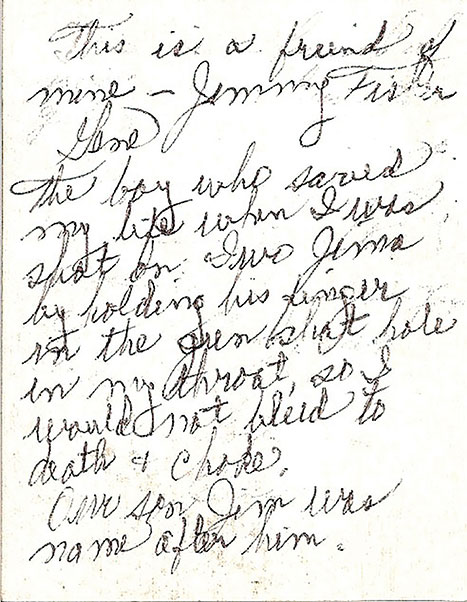 This is a freind of
mine - Jimmy Fisher
Gene
The boy who saved
my life when I was
shot on Iwo Jima
by holding his finger
in the gun shot hole
in my throat, so I
would not bleed to
death & choke.
Our son Jim was
name after him.